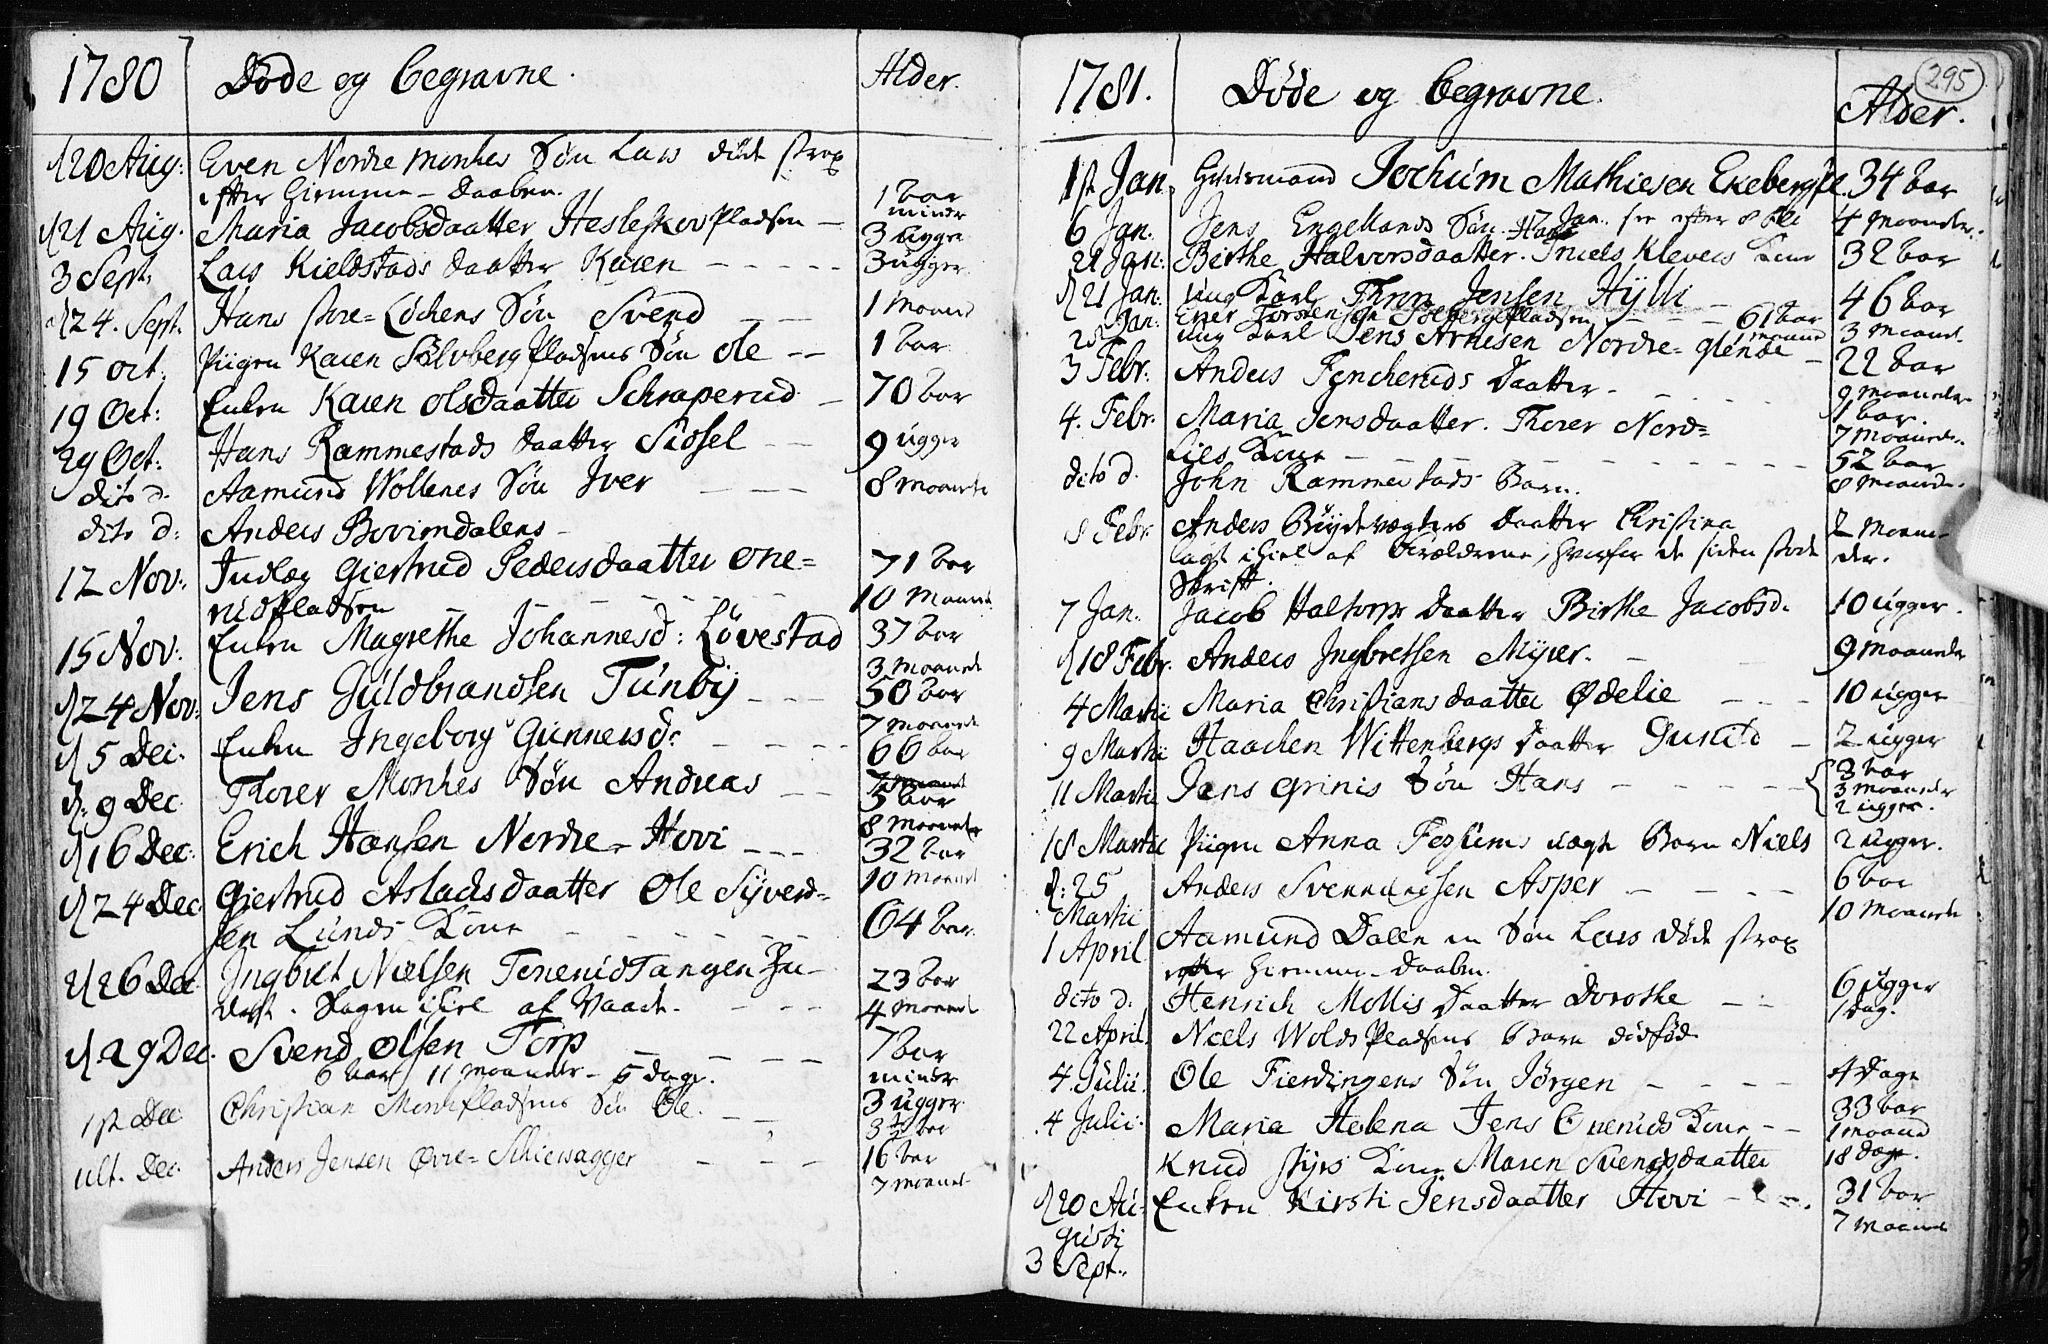 1780 Døde og begravne. Alder.
d 20 Aug: Even Nordre Monkes Søn Lars døde strax
efter Hiemme-Daaben.
d 21 Aug. Maria Jacobsdaatter HesleskovPladsen — 1 Aar minder 3 ugger
3 Sept: Lars Kieldstads Daatter Karen — — — — 3 ugger
d 24. Sept. Hans store-Løchens Søn Svend — — — 1 Maaned
15 Oct. Piigen Karen Sølvberg Pladsens Søn Ole — — 1 Aar
19 Oct: Enken Karen OlsDaatter Schraperud — 70 Aar
29 Oct: Hans Rammestads Daatter Sidsel — — 9 ugger
dito d. Aamund Wollenes Søn Iver — — — 8 Maaneder
dito d: Anders Bovimdalens —
12 Nov: Indlæg Giertrud Pedersdaatter One= 71 Aar
rudPladsen — — — — — 10 Maaneder
15 Nov: Enken Magrethe Johannesd: Løvestad 37 Aar
3 Maaneder
d 24 Nov: Jens Guldbrandsen Tunby — — — 50 Aar
7 Maaneder
d 5 Dec. Enken Ingeborg Gunnersd: — — — — 66 Aar
7 Maaneder
d: 9 Dec. Thorer Monkes Søn Andreas — — 5 Aar
8 Maaneder
d 16 Dec: Erich Hansen Nordre-Hovi — — — 32 Aar
10 Maaneder
d 24 Dec. Giertrud Aslachsdaatter Ole Syverd=
sen Lunds Kone — — — — — — 64 Aar
d 26 Dec. Ingbret Nielsen TenerudTangen 23 Aar
Slagen ihiel af Vaade. — — — 4 Maaneder
d 29 Dec. Svend Olsen Torp — — — — 7 Aar
6 Aar 11 Maaneder 5 Dage. minder
1st. Dec. Christian MonkPladsens Søn Ole. — — 3 ugger
3 ½ Aar
ult. Dec. Anders Jensen Øvre-Schiersagger — — — 16 Aar
7 Maaneder
295
1781. Døde og begravne. Alder.
1st Jan. Huusmand Jochum Mathiesen Ekebergpl. 34 Aar
6 Jan. Jens Engellands Søn 17 Jan. see efter 8 Feb 4 Maaneder.
21 Jan: Birthe Halvorsdaatter. Kone 32 Aar
d 21 Jan: ung Karl Thron Jensen Hylli — 46 Aar
Ener Torstensen SolbergPladsen — — — 61 Aar 3 Maaned.
Jan: ung Karl Jens Arnesen Nordre-Glende 1 Maaned — 22 Aar
3 Febr. Anders Fencheruds Daatter — 9 Maaneder
4. Febr. Maria Jensdaatter. Thorer Nord= 1 Aar. 7 Maaneder.
lies Kone — — — — — — — — 52 Aar
dito d. John Rammestads Barn. 8 Maaneder.
8 Febr. Anders Daatter Christina 2 Maane-
lagt ihiel af Forældrene, hvorfor de siden stode der.
Skrift.
7 Jan. Jacob Haltorps Daatter Birthe Jacobsd. 10 ugger.
d 18 Febr. Anders Ingbretsen Myrer. — — 9 Maaneder
4 Martii Maria Christiansdaatter Ødelie — — — 10 ugger
9 Martii Haachen Wittenbergs Daatter Gunild — 2 ugger
11 Martii Jens Grinis Søn Hans — — — — — { 3 Aar
3 Maaneder
2 ugger.
18 Martii Piigen Anna Fossums uægte Barn Niels 2 ugger.
d: 25 Anders Svennungsen Asper — — — — 6 Aar
Martii 10 Maaneder
1 April Aamund Dalle en Søn Lars døde strax
efter Hiemme-Daaben.
dito d: Henrich Mollis Daatter Dorothe — — 6 ugger 1 Dag.
22 April Niels Wolds Pladsens Barn dødfød
4 Julii. Ole Fierdingens Søn Jørgen — — — — 4 Dage
4 Julii. Maria Helena Jens Overuds Kone — — 33 Aar
1 Maaned
18 Dage.
Knud Styrs Kone Maren Svensdaatter
d 20 Au- Enken Kirsti Jensdaatter Hovi — — — 31 Aar
gusti 7 Maaneder
3 Sept.